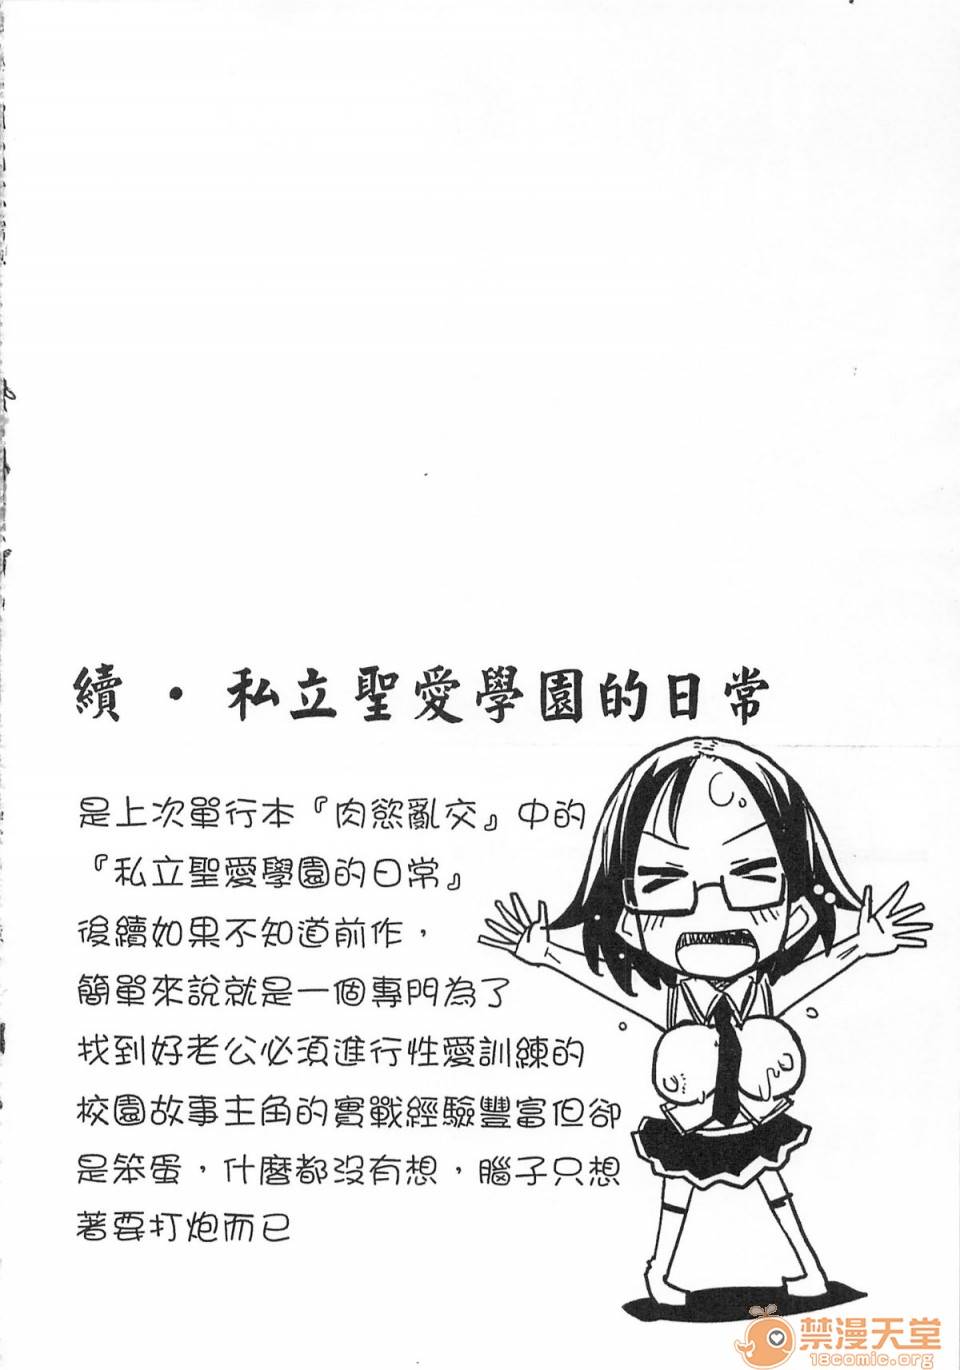 續・私立聖愛學園的日常
是上次單行本『肉慾亂交』中的
『私立聖愛學園的日常』
後續如果不知道前作，
簡單來說就是一個專門為了
找到好老公必須進行性愛訓練的
校園故事主角的實戰經驗豐富但卻
是笨蛋，什麼都沒有想，腦子只想
著要打炮而已
禁漫天堂
18comic.org